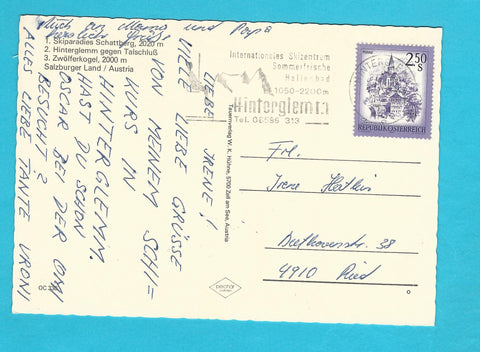 Auch an Mama und Papa
herzliche Grüße
1. Skiparadies Schattberg, 2020 m
2. Hinterglemm gegen Talschluß
3. Zwölferkogel, 2000 m
Salzburger Land / Austria
LIEBE IRENE!
VIELE LIEBE GRÜSSE
VON MEINEM SCHI=
KURS IN
HINTERGLEMM.
HAST DU SCHON
OSCAR BEI DER OMI
BESUCHT?
ALLES LIEBE TANTE VRONI
OC
W. K. Höhne, 5700 Zell am See, Austria
Internationales Skizentrum
Sommerfrische
Hallenbad
1050-2200m
Hinterglemm
Tel 06586 313
2.50
S
REPUBLIK ÖSTERREICH
Frl.
Irene
Beethovenstr. 38
4910 Ried